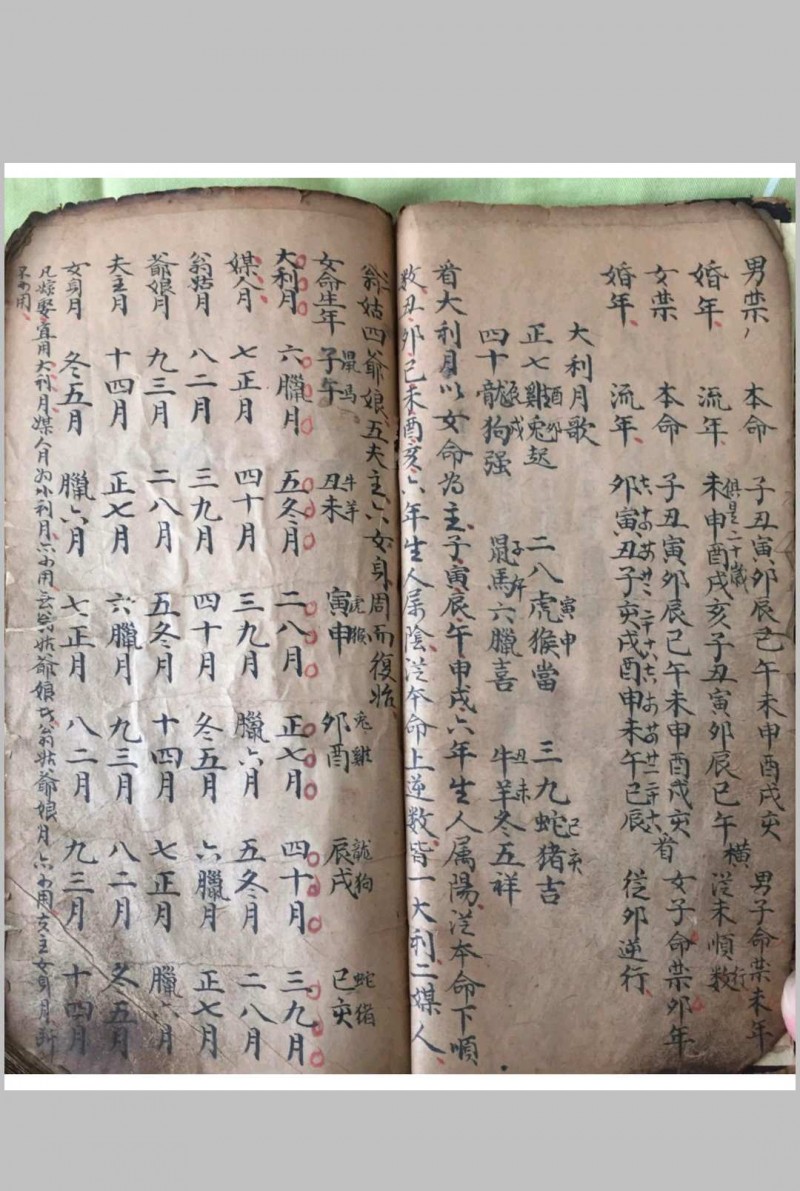 男禁 本命 子丑寅卯辰巳午未申酉戌亥 男子命禁未年
俱是二十歲 橫行
婚年 流年 未申酉戌亥子丑寅卯辰巳午 從未順数
女禁 本命 子丑寅卯辰巳午未申酉戌亥 女子命禁卯年
婚年 流年 卯寅丑子亥戌酉申未午巳辰 從卯逆行
大利月歌
正七雞兔起 二八虎猴當 三九蛇猪吉
酉卯 寅申 巳亥
四十龍狗强 鼠馬六臘喜 牛羊冬五祥
辰戌 子午 丑未
看大利月以女命為主子寅辰午申戌六年生人属陽從本命下順
数丑卯巳未酉亥六年生人属陰從本命上逆数皆一大利二媒人
三翁姑四爺娘五夫主六女身周而復始
女命生年 子午 鼠馬 丑未 牛羊 寅申 虎猴 卯酉 兔雞 辰戌 龍狗 巳亥 蛇猪
大利月 六臘月 五冬月 二八月 正七月 四十月 三九月
媒人月 七正月 四十月 三九月 臘六月 五冬月 二八月
翁姑月 八二月 三九月 四十月 冬五月 六臘月 正七月
爺娘月 九三月 二八月 五冬月 十四月 七正月 臘六月
夫主月 十四月 正七月 六臘月 九三月 八二月 冬五月
女身月 冬五月 臘六月 七正月 八二月 九三月 十四月
凡嫁娶宜用大利月媒人月為小利月亦可用 翁姑爺娘 翁姑爺娘月亦可用夫主女身月断
不可用